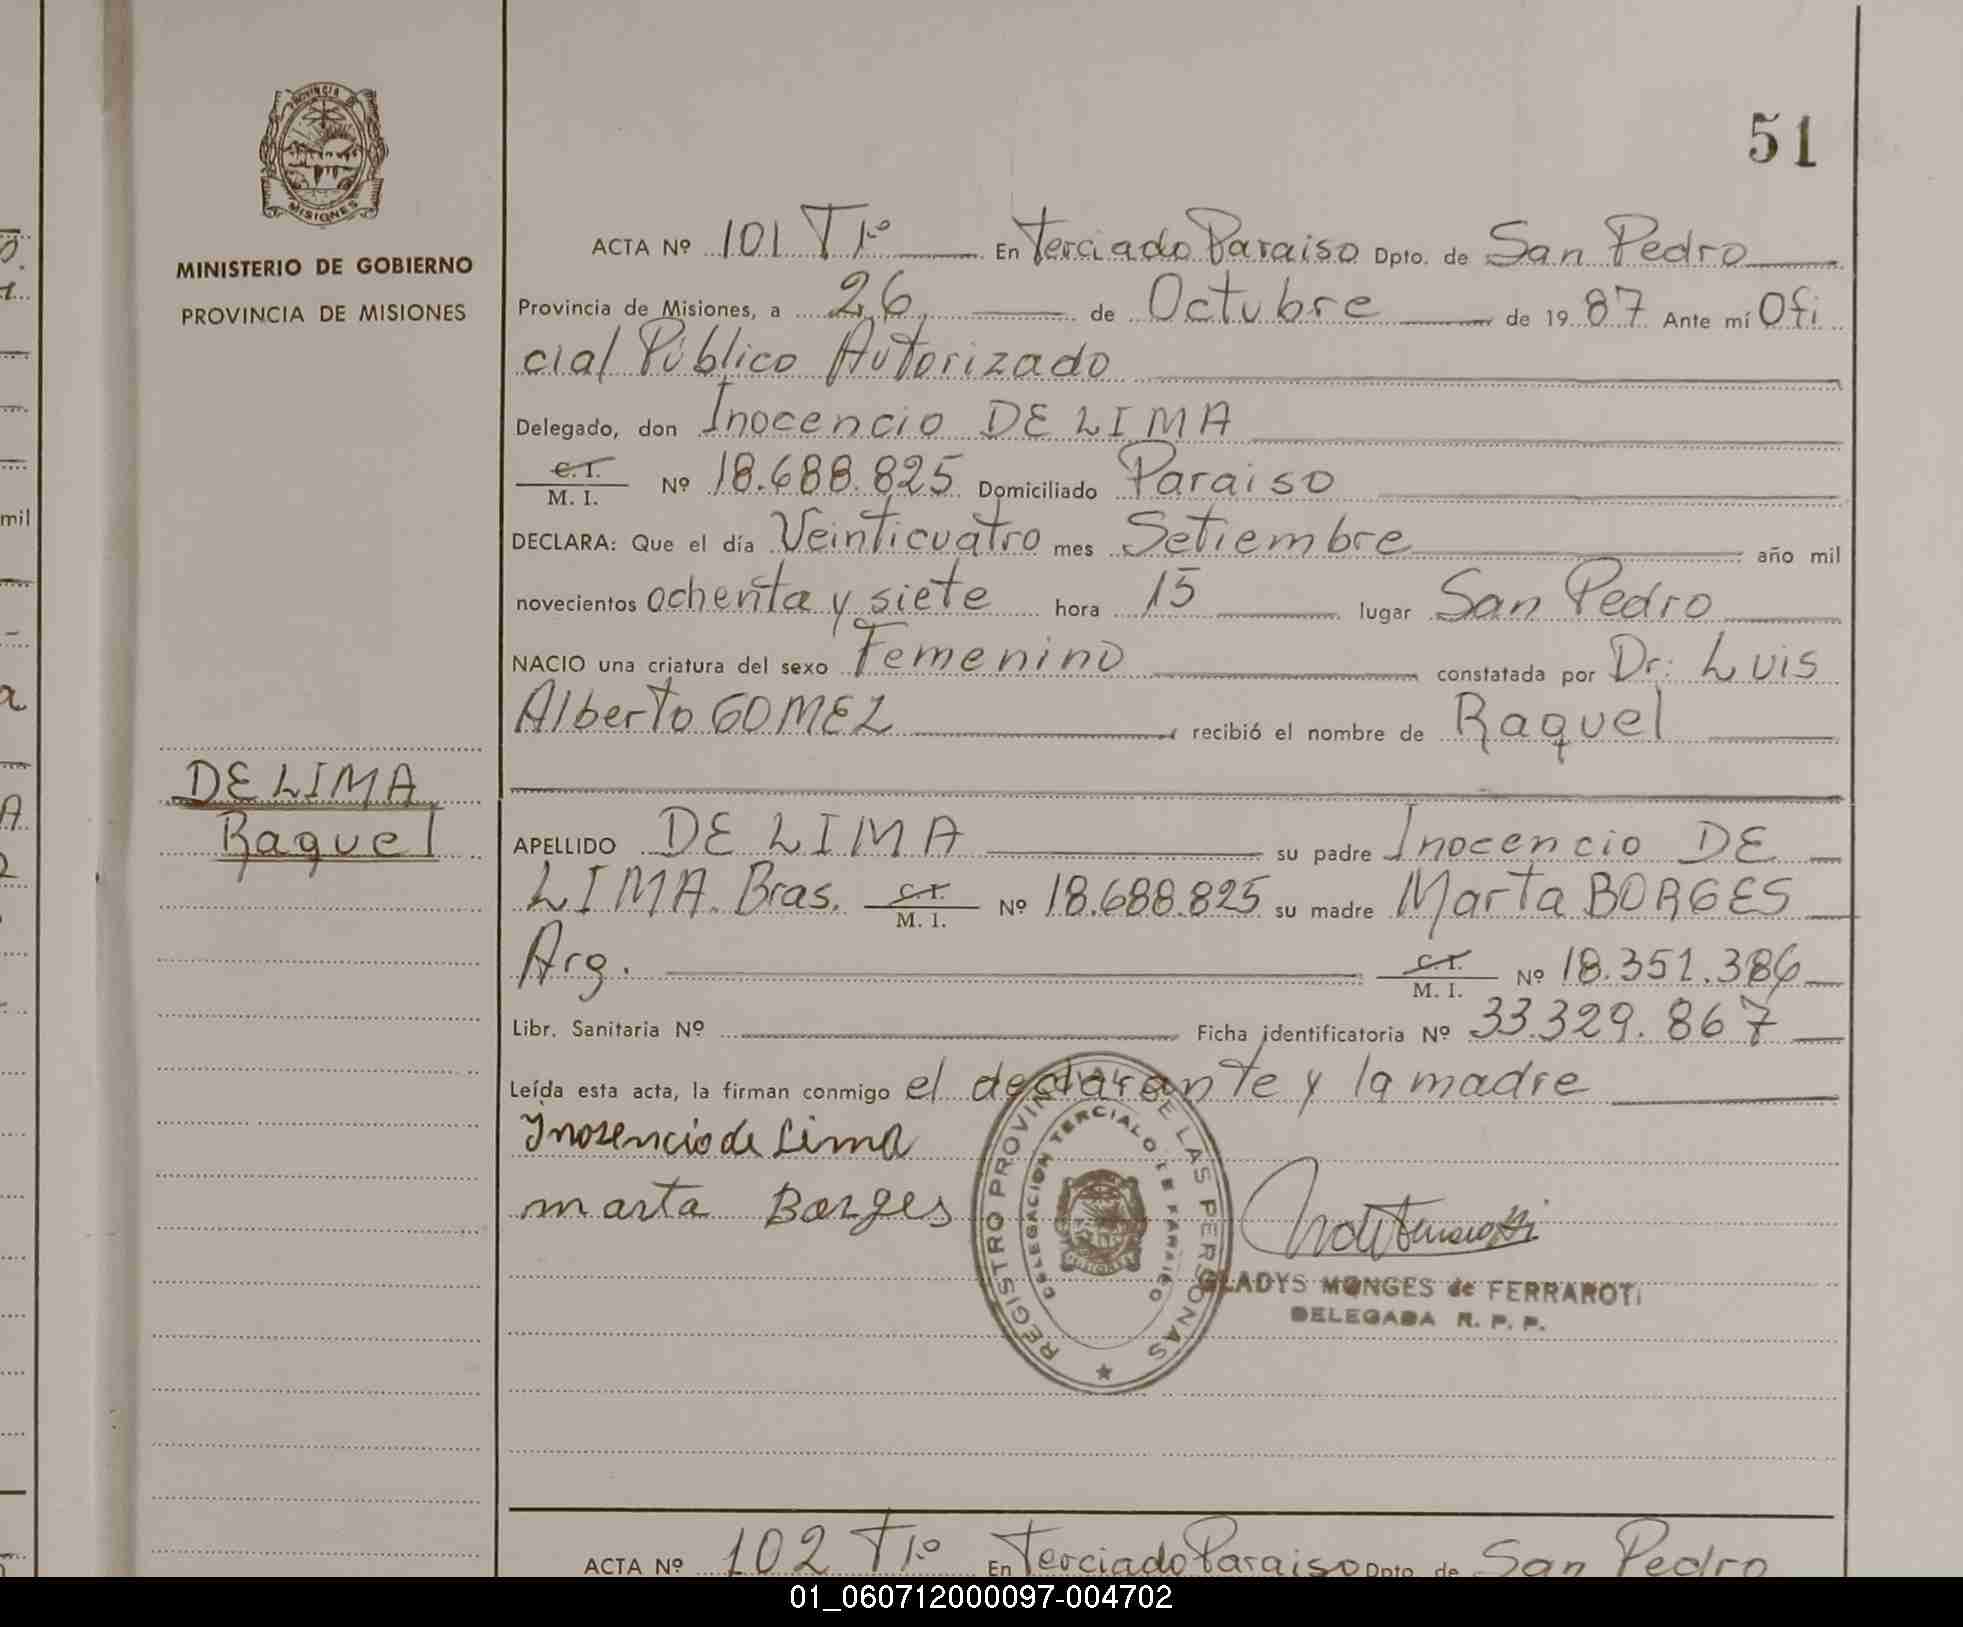 51
PROVINCIA DE
MISIONES
MINISTERIO DE GOBIERNO
PROVINCIA DE MISIONES
DE LIMA
Raquel
ACTA Nº 101 T1º En Terciado Paraiso Dpto. de San Pedro
Provincia de Misiones, a 26 de Octubre de 1987 Ante mí Ofi
cial Público Autorizado
Delegado, don Inocencio DE LIMA
C. I. / M. I. Nº 18.688.825 Domiciliado Paraiso
DECLARA: Que el día Veinticuatro mes Setiembre año mil
novecientos ochenta y siete hora 15 lugar San Pedro
NACIO una criatura del sexo Femenino constatada por Dr: Luis
Alberto GOMEZ recibió el nombre de Raquel
APELLIDO DE LIMA su padre Inocencio DE
LIMA. Bras. C. I. / M. I. Nº 18.688.825 su madre Marta BORGES
Arg. C. I. / M. I. Nº 18.351.386
Libr. Sanitaria Nº Ficha identificatoria Nº 33.329.867
Leída esta acta, la firman conmigo el declarante y la madre
Inosencio de Lima
marta Borges
REGISTRO PROVINCIAL DE LAS PERSONAS
DELEGACION TERCIADO DE PARAISO
MISIONES
GLADYS MONGES de FERRAROTI
DELEGADA R. P. P.
ACTA Nº 102 T1º En Terciado Paraiso Dpto. de San Pedro
01_060712000097-004702